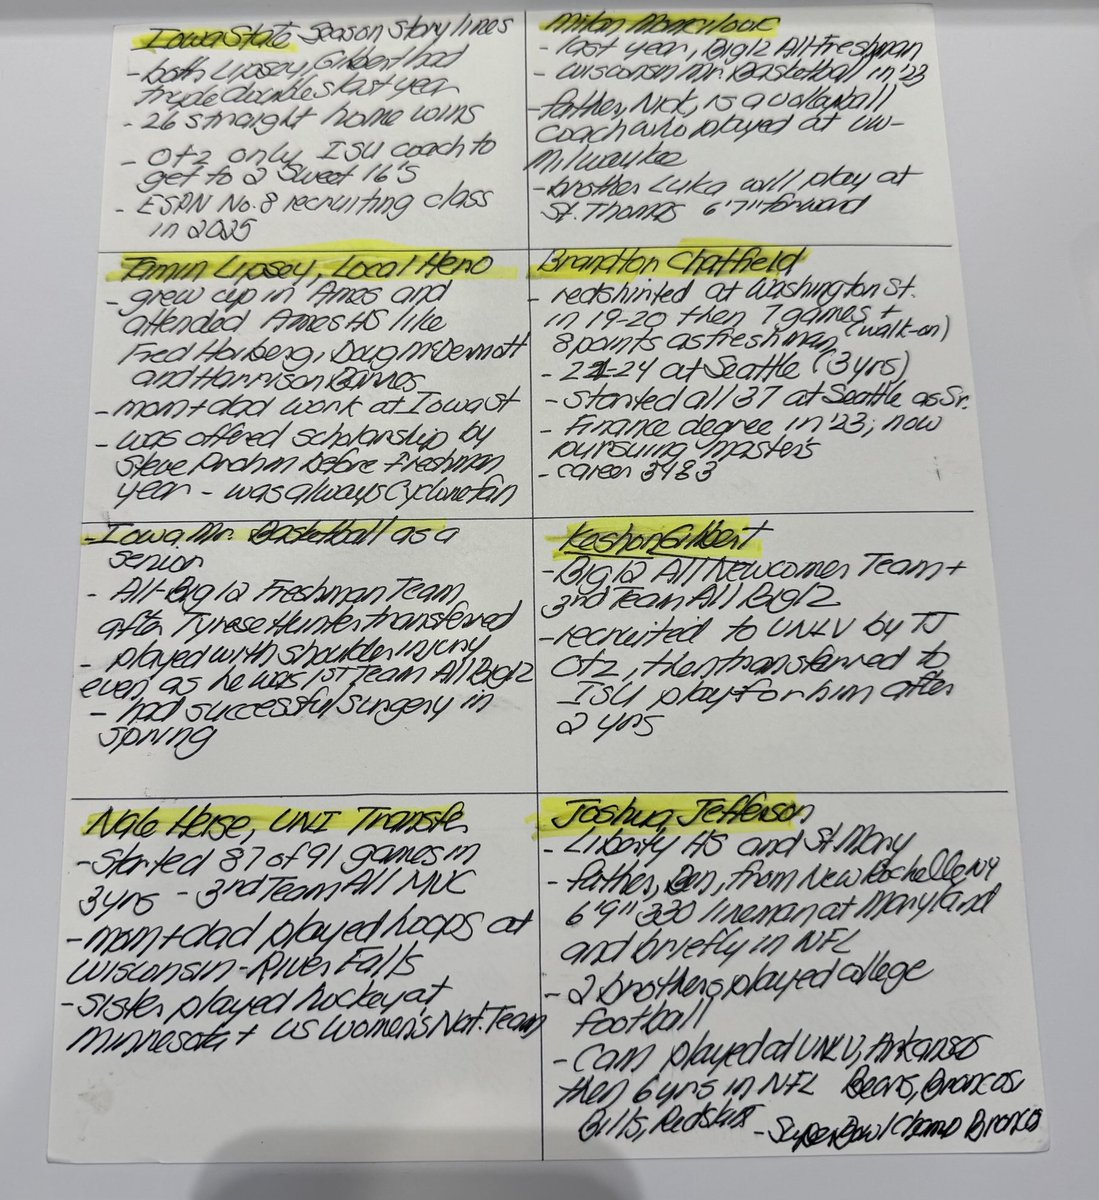 Iowa State Season story lines
- both Lipsey, Gilbert had
triple doubles last year
- 26 straight home wins
- Otz only ISU coach to
get to 2 Sweet 16's
- ESPN No. 8 recruiting class
in 2025
Milan Momcilovic
- last year, Big 12 All-Freshman
- Wisconsin Mr. Basketball in '23
- father, Nick, is a volleyball
coach who played at UW-
Milwaukee
- brother Luka will play at
St. Thomas 6'7" forward
Tamin Lipsey, Local Hero
- grew up in Ames and
attended Ames HS like
Fred Hoiberg, Doug McDermott
and Harrison Barnes
- mom + dad work at Iowa St
- was offered scholarship by
Steve Prohm before freshman
year - was always Cyclone fan
Brandton Chatfield
- redshirted at Washington St.
in 19-20 then 7 games +
8 points as freshman (walk-on)
- 21-24 at Seattle (3 yrs)
- started all 37 at Seattle as Sr.
- Finance degree in '23; now
pursuing masters
- career 3483
- Iowa Mr. Basketball as a
senior
- All-Big 12 Freshman Team
after Tyrese Hunter transferred
- played with shoulder injury
even as he was 1st Team All Big 12
- had successful surgery in
spring
Keshon Gilbert
- Big 12 All Newcomer Team +
3rd Team All Big 12
- recruited to UNLV by TJ
Otz, then transferred to
ISU play for him after
2 yrs
Nate Heise, UNI Transfer
- Started 87 of 91 games in
3 yrs - 3rd Team All MVC
- mom + dad played hoops at
Wisconsin-River Falls
- sister played hockey at
Minnesota + US Women's Nat. Team
Joshua Jefferson
- Liberty HS and St Mary
- father, Ben, from New Rochelle NY
6'9" 330 lineman at Maryland
and briefly in NFL
- 2 brothers played college
football
- Cam played at UNLV, Arkansas
then 6 yrs in NFL Bears, Broncos
Bills, Redskins - Super Bowl Champ Broncos